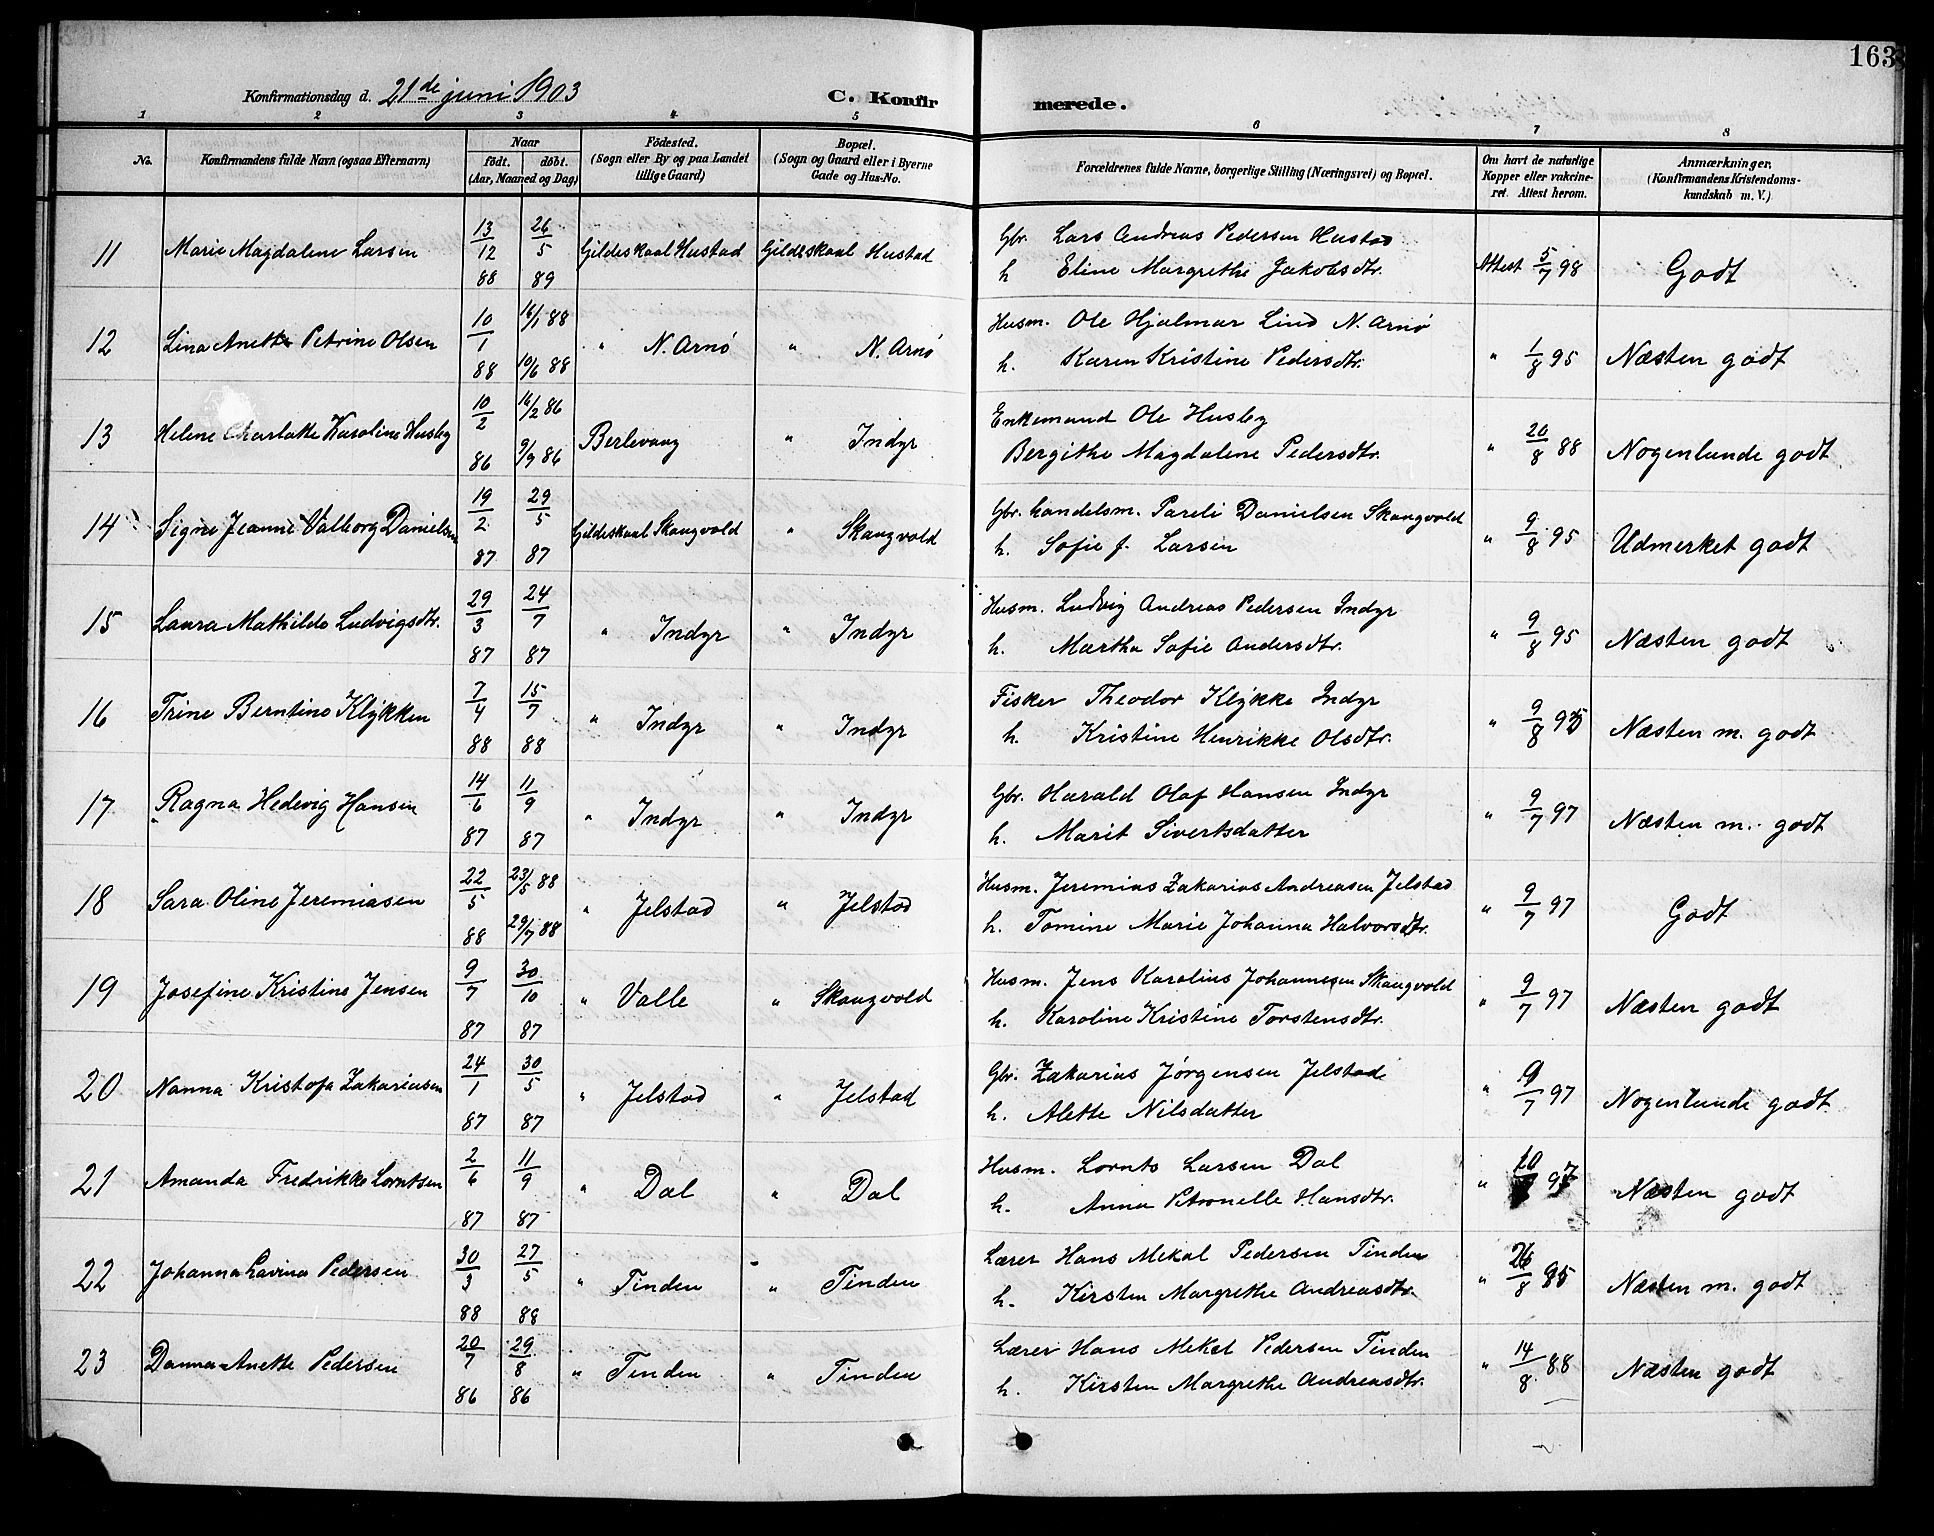 163
Konfirmationsdag d. 21de juni 1903 C. Konfirmerede.
1 2 3 4 5 6 7 8
No. Konfirmandens fulde Navn (ogsaa Efternavn) Naar født. døbt. (Aar, Maaned og Dag) Fødested. (Sogn eller By og paa Landet tillige Gaard) Bopæl. (Sogn og Gaard eller i Byerne Gade og Hus-No. Forældrenes fulde Navne, borgerlige Stilling (Næringsvei) og Bopæl. Om havt de naturlige Kopper eller vakcineret. Attest herom. Anmærkninger. (Konfirmandens Kristendomskundskab m. V.)
11 Marie Magdalene Larsen 13/12 88 26/5 89 Gildeskaal Hustad Gildeskaal Hustad Gbr. Lars Andreas Pedersen Hustad Attest 5/7 98 Godt
h Eline Margrethe Jakobsdtr.
12 Lina Anette Petrine Olsen 10/1 88 16/1 88 10/6 88 " N. Arnø " N. Arnø Husm. Ole Hjalmar Lind N. Arnø " 1/8 95 Næsten godt
h. Karen Kristine Pedersdtr.
13 Helene Charlotte Karoline Husby 10/2 86 16/2 86 9/9 86 Berlevaag " Indyr Enkemand Ole Husby " 20/8 88 Nogenlunde godt
Bergithe Magdalene Pedersdtr.
14 Signe Jeanne Valborg Danielsen 19/2 87 29/5 87 Gildeskaal Skaugvold " Skaugvold Gbr. handelsm. Pareli Danielsen Skaugvold " 9/8 95 Udmerket godt
h. Sofie J. Larsen
15 Laura Mathilde Ludvigsdtr. 29/3 87 24/7 87 " Indyr " Indyr Husm. Ludvig Andreas Pedersen Indyr " 9/8 95 Næsten godt
h. Martha Sofie Andersdtr.
16 Trine Berntine Klykken 7/4 88 15/7 88 " Indyr " Indyr Fisker Theodor Klykke Indyr " 9/8 95 Næsten m. godt
h. Kristine Henrikke Olsdtr.
17 Ragna Hedevig Hansen 14/6 87 11/9 87 " Indyr " Indyr Gbr. Harald Olaf Hansen Indyr " 9/7 97 Næsten m. godt
h. Marit Sivertsdatter
18 Sara Oline Jeremiasen 22/5 88 23/5 88 29/7 88 " Jelstad " Jelstad Husm. Jeremias Zakarias Andreasen Jelstad " 9/7 97 Godt
h. Tomine Marie Johanna Halvorsdtr.
19 Josefine Kristine Jensen 9/7 87 30/10 87 " Valle " Skaugvold Husm. Jens Karolius Johannesen Skaugvold " 9/7 97 Næsten godt
h. Karoline Kristine Torstensdtr.
20 Nanna Kristofa Zakariasen 24/1 87 30/5 87 " Jelstad " Jelstad Gbr. Zakarias Jørgensen Jelstad " 9/7 97 Nogenlunde godt
h. Alette Nilsdatter
21 Amanda Fredrikke Lorntsen 2/6 87 11/9 87 " Dal " Dal Husm. Lornts Larsen Dal " 97 Næsten godt
h. Anna Petronelle Hansdtr.
22 Johanna Lavina Pedersen 30/3 88 27/5 88 " Tinden " Tinden Lærer Hans Mekal Pedersen Tinden " 26/8 95 Næsten m. godt
h. Kirsten Margrethe Andreasdtr.
23 Danna Anette Pedersen 20/7 86 29/8 86 " Tinden " Tinden Lærer Hans Mekal Pedersen Tinden " 14/8 88 Næsten godt
h. Kirsten Margrethe Andreasdtr.